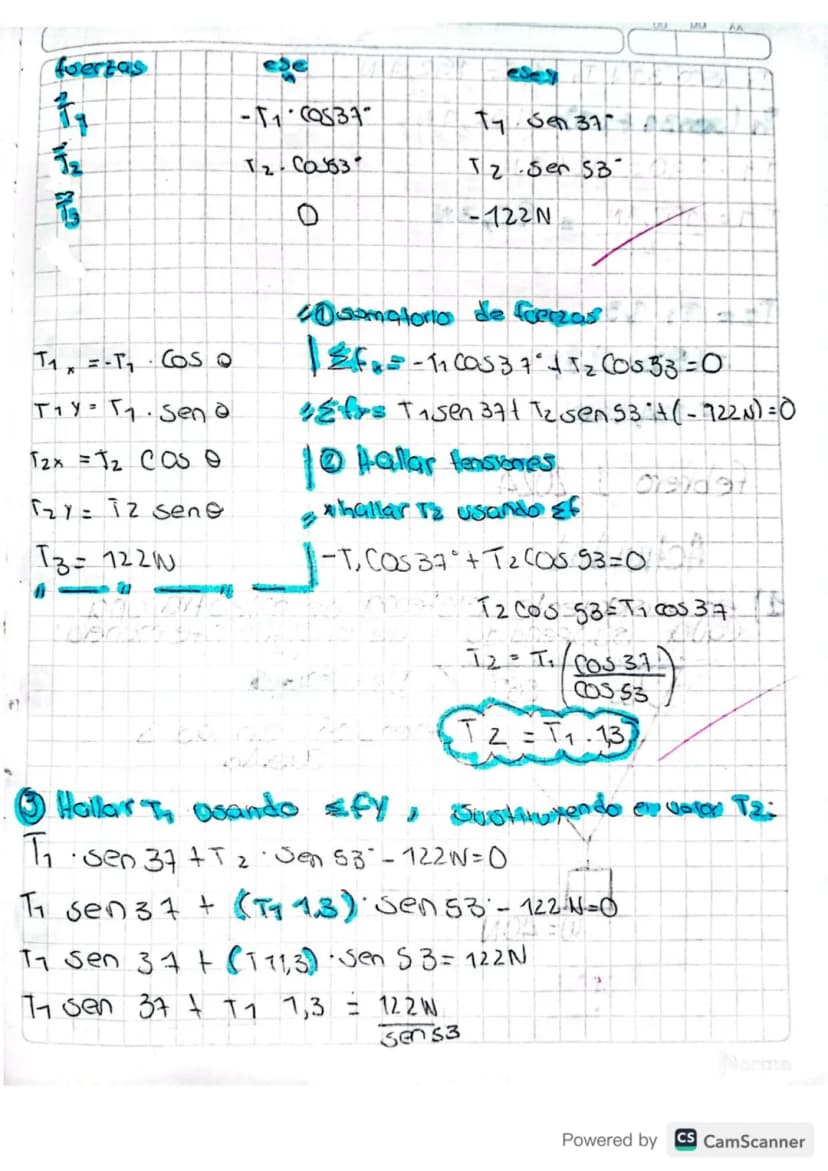 fuerzas eje ejey
T1 -T1 · cos37° T1 . Sen 37°
T2 T2 . Cos53° T2 . Sen 53°
T3 0 -122N
① somatorio de fuerzas
T1x = -T1 . Cos θ Σfx = -T1 cos 37° + T2 Cos 53 = 0
T1y = T1 . Sen θ Σfy = T1 sen 37 + T2 sen 53 + (-122N) = 0
T2x = T2 Cos θ ② Hallar tensiones
T2y = T2 sen θ * hallar T2 usando Σf
T3 = 122N -T1 Cos 37° + T2 Cos 53 = 0
T2 cos 53 = T1 cos 37
T2 = T1 (cos 37 / cos 53)
T2 = T1 . 1,3
③ Hallar T1 usando Σfy , Sustituyendo en valor T2:
T1 · sen 37 + T2 · Sen 53° - 122N = 0
T1 sen 37 + (T1 1,3) · sen 53 - 122 N = 0
T1 sen 37 + (T1 1,3) · sen 53 = 122N
T1 sen 37 + T1 1,3 = 122N / sen 53
Norma
Powered by CS CamScanner